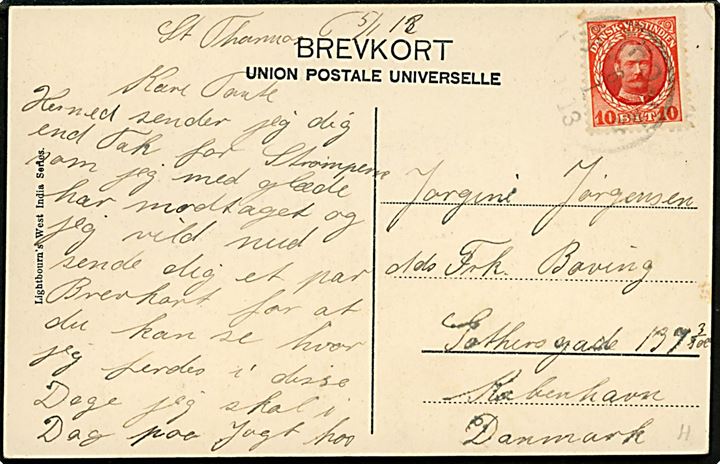 St Thomas 5/1 13
BREVKORT
UNION POSTALE UNIVERSELLE
Kare Tante
Hermed sender jeg dig
end Tak for Strømperne
som jeg med glæde
har modtaget og
jeg vild nud
sende dig et par
Brevkort for at
du kan se hvor
jeg ferdes i disse
Dage jeg skal i
Dag paa Jagt hos
Lightbourn's West India Series.
DANSK-VESTINDIEN
10 BIT 10
Jorgine Jørgensen
Ads Frk. Boving
Gothersgade 137 3/
København
Danmark
H